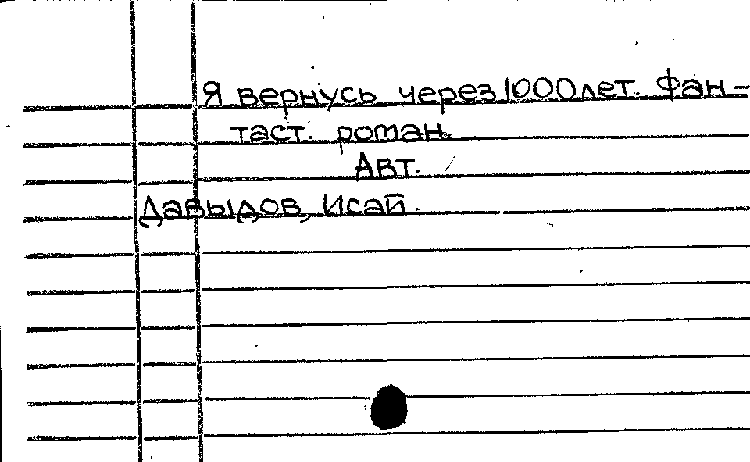 Я вернусь через 1000 лет. Фан-
таст. роман.
Авт.
Давыдов, Исай.